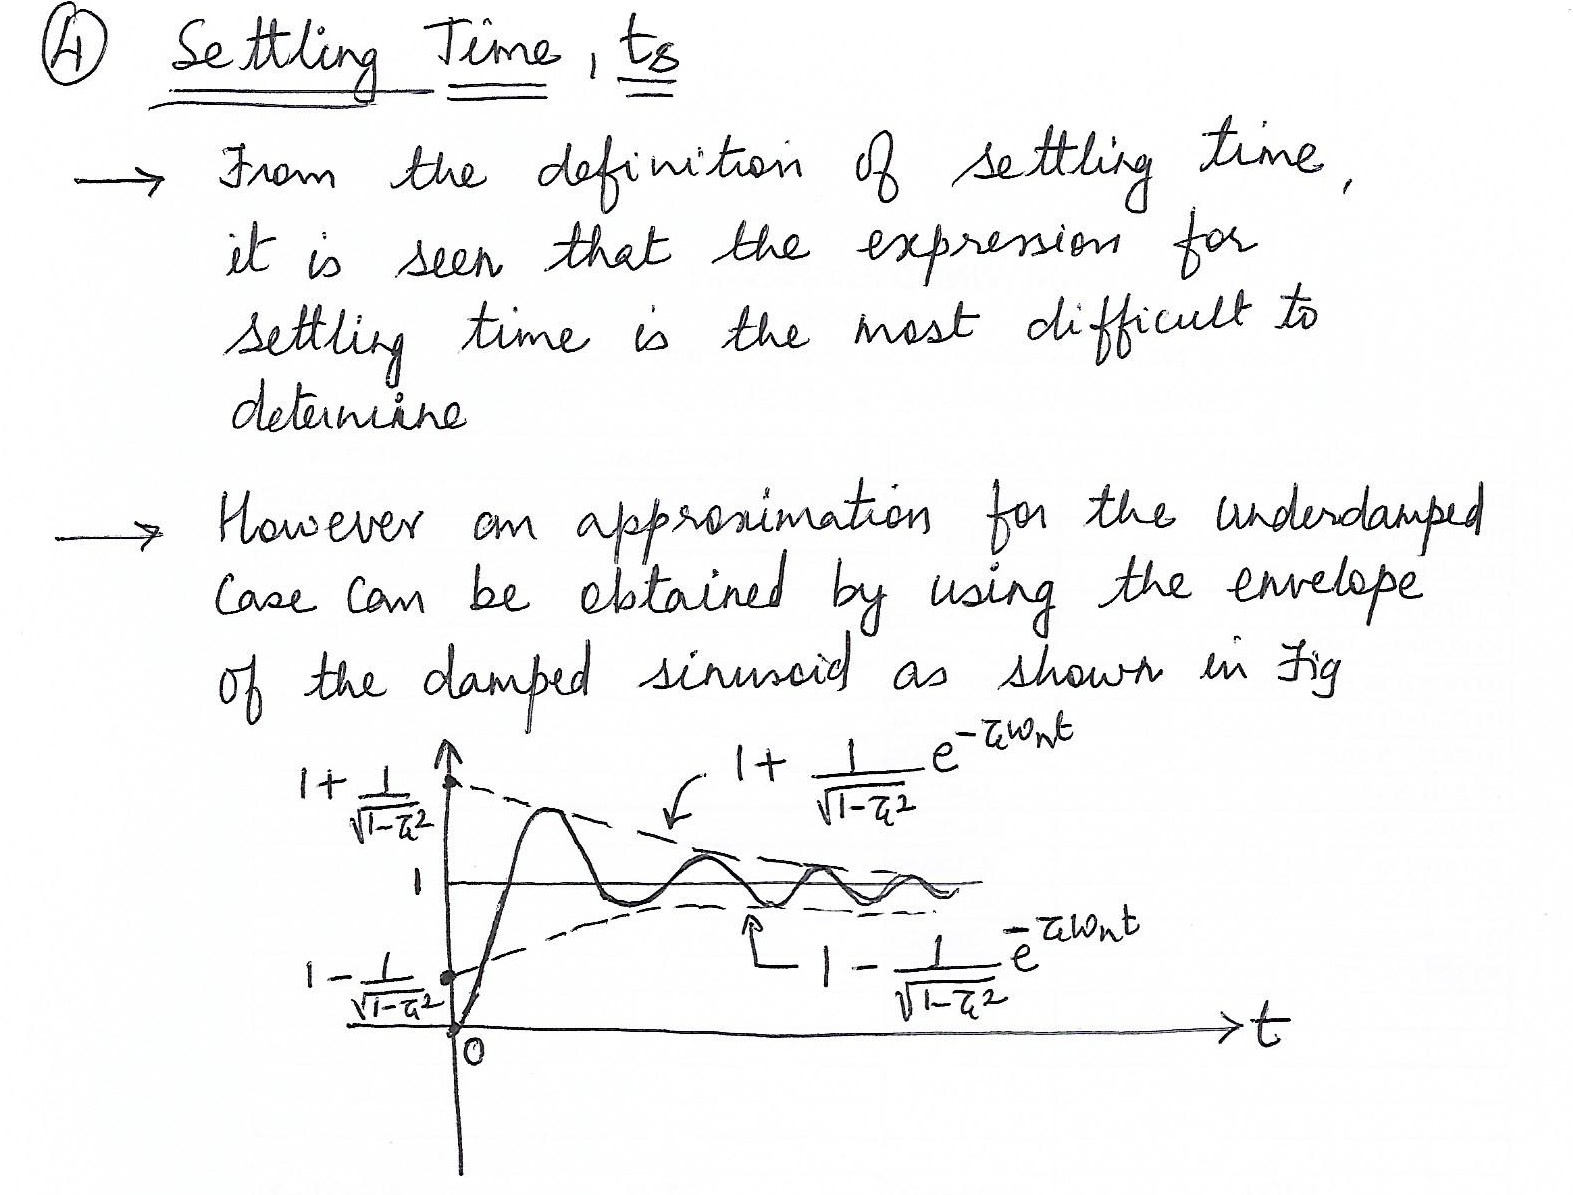 ④ Settling Time, ts
→ From the definition of settling time,
it is seen that the expression for
settling time is the most difficult to
determine
→ However an approximation for the underdamped
case can be obtained by using the envelope
of the damped sinusoid as shown in Fig
1+ 1/√(1-ζ²)
1+ 1/√(1-ζ²) e^(-ζωnt)
1
1- 1/√(1-ζ²)
1- 1/√(1-ζ²) e^(-ζωnt)
0
t